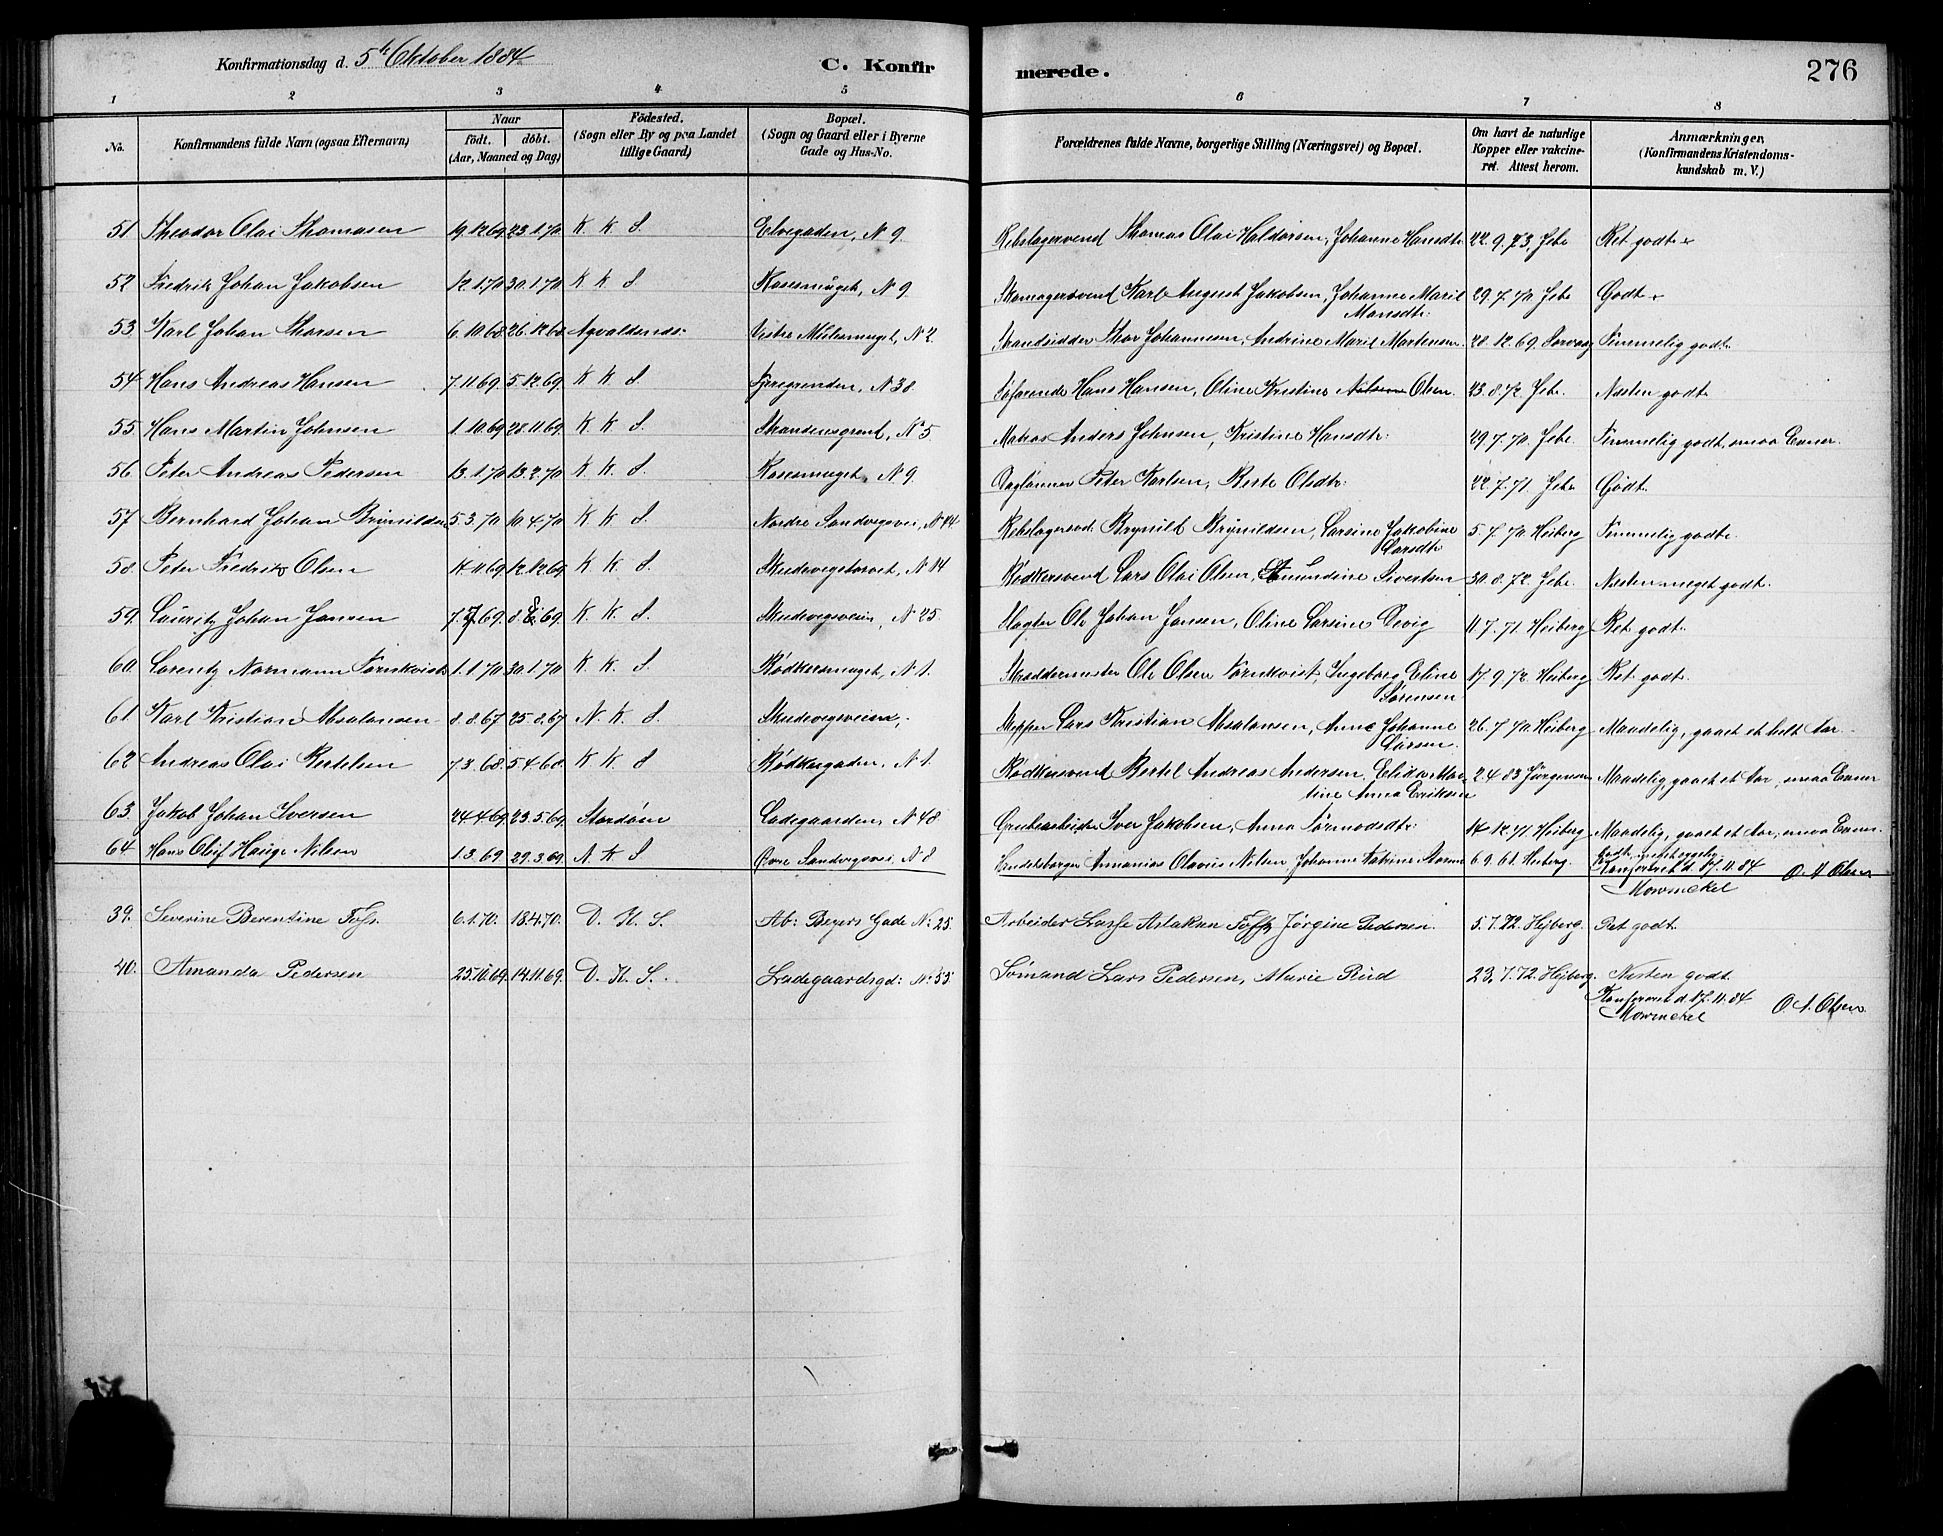 Konfirmationsdag d. 5te Oktober 1884 C. Konfirmerede. 276
1 2 3 4 5 6 7 8
No. Konfirmandens fulde Navn (ogsaa Efternavn) Naar födt. döbt. (Aar, Maaned og Dag) Födested. (Sogn eller By og paa Landet tillige Gaard) Bopæl. (Sogn og Gaard eller i Byerne Gade og Hus-No. Forældrenes fulde Navne, borgerlige Stilling (Næringsvei) og Bopæl. Om havt de naturlige Kopper eller vakcineret. Attest herom. Anmærkninger, (Konfirmandens Kristendomskundskab m. V.)
51. Theodor Olai Thomasen 19.12.69. 23.1.70 K K S Elvegaden, N 9. Rebslagersvend Thomas Olai Haldorsen, Johanne Hansdtr. 22.9.73. Jebe Ret godt.
52 Fredrik Johan Jakobsen 12.1.70 30.1.70 K K S Rosesmuget, N 9. Skomagersvend Karl August Jakobsen, Johanne Marie Monsdtr: 29.7.70 Jebe Godt.
53. Karl Johan Thorsen 6.10.68. 26.12.68 Agvaldsnds: Vestre Mulesmuget, N 2. Strandsidder Thor Johannesen, Andrine Marie Martensen. 28.12.69 Temmelig godt.
54. Hans Andreas Hansen 7.11.69. 5.12.69. K K S. N 38. Søfarende Hans Hansen, Oline Kristine Olsen. 23.8.72. Jebe. Næsten godt.
55. Hans Martin Johnsen 1.10.69 28.11.69. K. K. S. N 5. Matros Anders Johnsen, Kristine Hansdtr: 29.7.70. Jebe Temmelig godt, smaa Evner.
56. Peter Andreas Pedersen 13.1.70 13.2.70 K K. S. Rosesmuget, N 9. Daglønner Peter Karlsen, Berte Olsdtr: 22.7.71. Jebe Godt.
57. Bernhard Johan Brynildsen 5.3.70 10.4.70 K K S. Nordre Sandvigsvei, N 44 Rebslagersvd. Brynild Brynildsen, Larsine Jakobine Larsdtr 5.7.70. Heiberg Temmelig godt.
58. Peter Fredrik Olsen 14.11.69 12.12.69 K K S. Skudevigstorvet, N 14 Bødkersvend Lars Olai Olsen, Amundine Sivertsen 30.8.72. Jebe. Næsten meget godt.
59. Lauritz Johan Jansen 7.7.69. 8.8.69. K K. S. Skudevigsveien, N 25. Vægter Ole Johan Jansen, Oline Larsine Devig 11.7.71. Heiberg Ret godt.
60. Lorentz Normann Törnkvist 1.1.70 30.1.70 K K S Bødkersmuget, N 1. Skræddermester Ole Olsen Törnkvist, Ingeborg Eline Sørensen 17.9.72. Heiberg Ret godt.
61. Karl Kristian Absalonsen 8.8.67 25.8.67 N. K. S. Skudevigsveien, Skipper Lars Kristian Absalonsen, Anne Johanne Larsen. 26.7.70. Heiberg Maadelig, gaaet et helt Aar.
62 Andreas Olai Bertelsen 7.3.68. 5.4.68. K. K. S Bødkergaden, N 1. Bødkersvend Bertel Andreas Andersen, Anna Eriksen 2.4.83 Jürgensen Maadelig, gaaet et Aar, smaa Evner
63. Jakob Johan Iversen 24.4.69. 23.5.69. Stordøen Ladegaarden, N 48. Grubearbeider Iver Jakobsen, Anna Tørmodsdtr: 14.12.71 Heiberg Maadelig, gaaet et Aar, smaa Evner.
64. Hans Oluf Hauge Nilsen 1.3.69. 29.3.69. N. K S Øvre Sandvigsvei, N 8 Ananias Olavius Nilsen, Johanne Katrine 6.9.61. Heiberg. Godt,
Konfereret d. 17.11.84 O. A. Olsen
Mowinckel
39. Severine Berentine Foss. 6.1.70. 18.4.70. D. K. S. Ab: Beyers Gade N: 25. Arbeider Lasse Aslaksen Foss, Jørgine Pedersen. 5.7.72. Hejberg. Ret godt.
40. Amanda Pedersen 25.10.69. 14.11.69. D. K. S. Ladegaardsgd: N: 55. Sømand Lars Pedersen, Marie Rud 23.7.72. Hejberg. Næsten godt.
Konfereret d. 17.11.84 O. A. Olsen.
Mowinckel